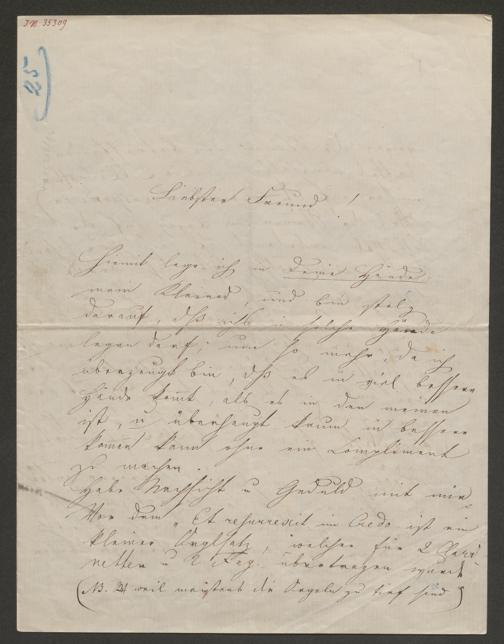 I.N. 35309
25
Liebster Freund!
Hiemit lege ich in Deine Hände
mein Kleinod, und bin stolz
darauf, daß ich's in solche Hände
legen darf; um so mehr, da ich
überzeugt bin, daß es in viel bessere
Hände kömt, als es in den meinen
ist, u überhaupt kaum in bessere
kommen kann ohne ein Compliment
zu machen.
Habe Nachsicht u Geduld mit mir
Vor dem „Et resurrexit im Credo ist ein
kleiner Orglsatz, welcher für 2 Clari
netten u 2 Fag. übertragen wurde
(NB. weil meistens die Orgeln zu tief sind)